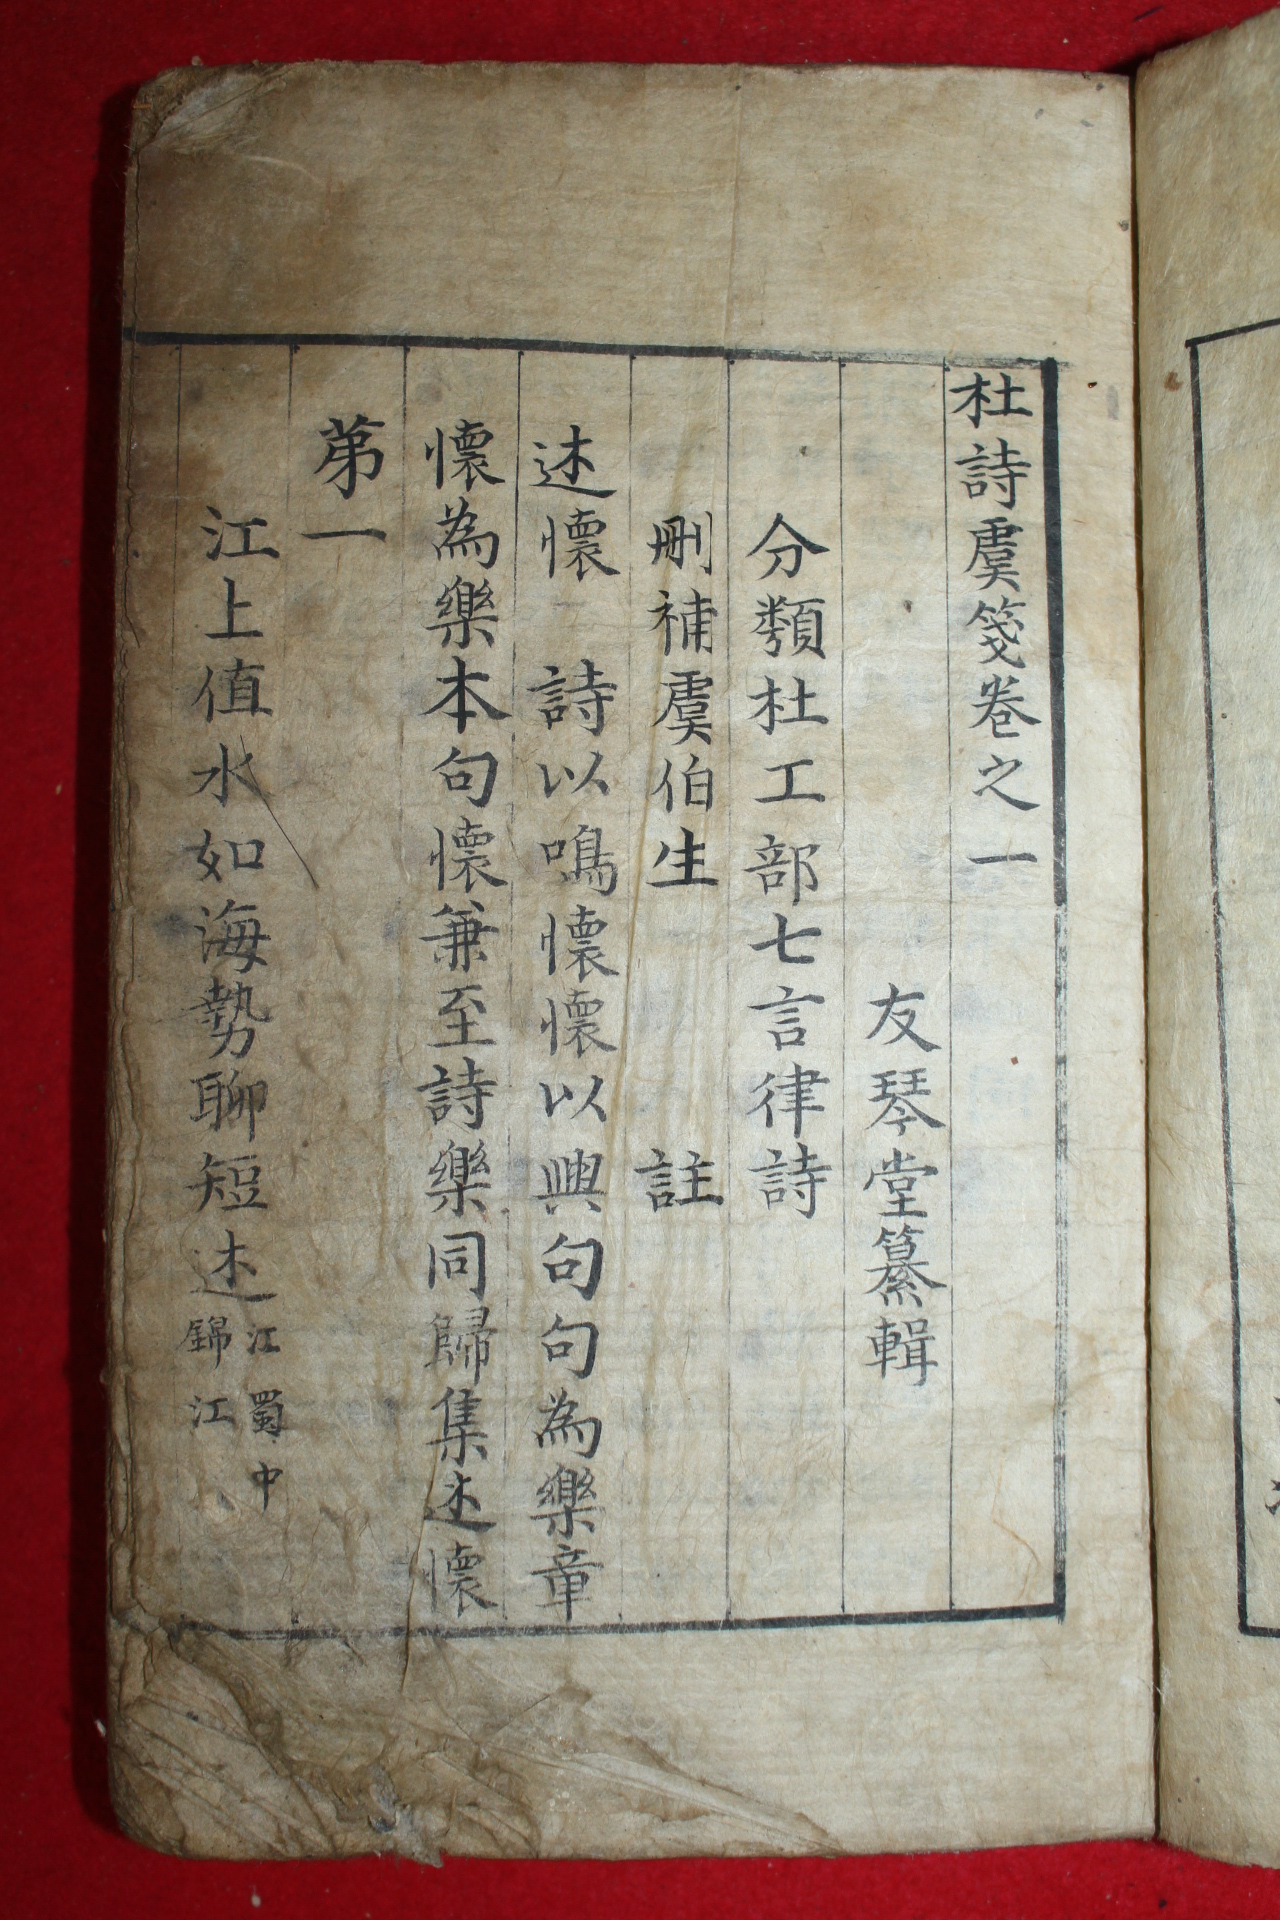 杜詩虞箋卷之一
友琴堂纂輯
分類杜工部七言律詩
刪補虞伯生 註
述懷 詩以鳴懷懷以興句句為樂章
懷為樂本句懷兼至詩樂同歸集述懷
苐一
江上值水如海勢聊短述江蜀中
錦江